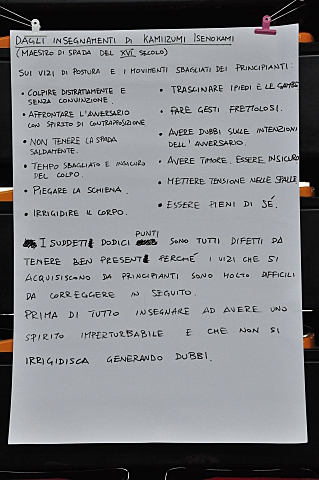 DAGLI INSEGNAMENTI DI KAMIIZUMI ISENOKAMI
(MAESTRO DI SPADA DEL XVI SECOLO)
SUI VIZI DI POSTURA E I MOVIMENTI SBAGLIATI DEI PRINCIPIANTI:
• COLPIRE DISTRATTAMENTE E
SENZA CONVINZIONE.
• AFFRONTARE L'AVVERSARIO
CON SPIRITO DI CONTRAPPOSIZIONE
• NON TENERE LA SPADA
SALDAMENTE.
• TEMPO SBAGLIATO E INSICURO
DEL COLPO.
• PIEGARE LA SCHIENA.
• IRRIGIDIRE IL CORPO.
• TRASCINARE I PIEDI E LE GAMBE
• FARE GESTI FRETTOLOSI.
• AVERE DUBBI SULLE INTENZIONI
DELL'AVVERSARIO.
• AVERE TIMORE, ESSERE INSICURO
• METTERE TENSIONE NELLE SPALLE
• ESSERE PIENI DI SÉ.
I SUDDETTI DODICI PUNTI SONO TUTTI DIFETTI DA
TENERE BEN PRESENTI PERCHÉ I VIZI CHE SI
ACQUISISCONO DA PRINCIPIANTI SONO MOLTO DIFFICILI
DA CORREGGERE IN SEGUITO.
PRIMA DI TUTTO INSEGNARE AD AVERE UNO
SPIRITO IMPERTURBABILE E CHE NON SI
IRRIGIDISCA GENERANDO DUBBI.